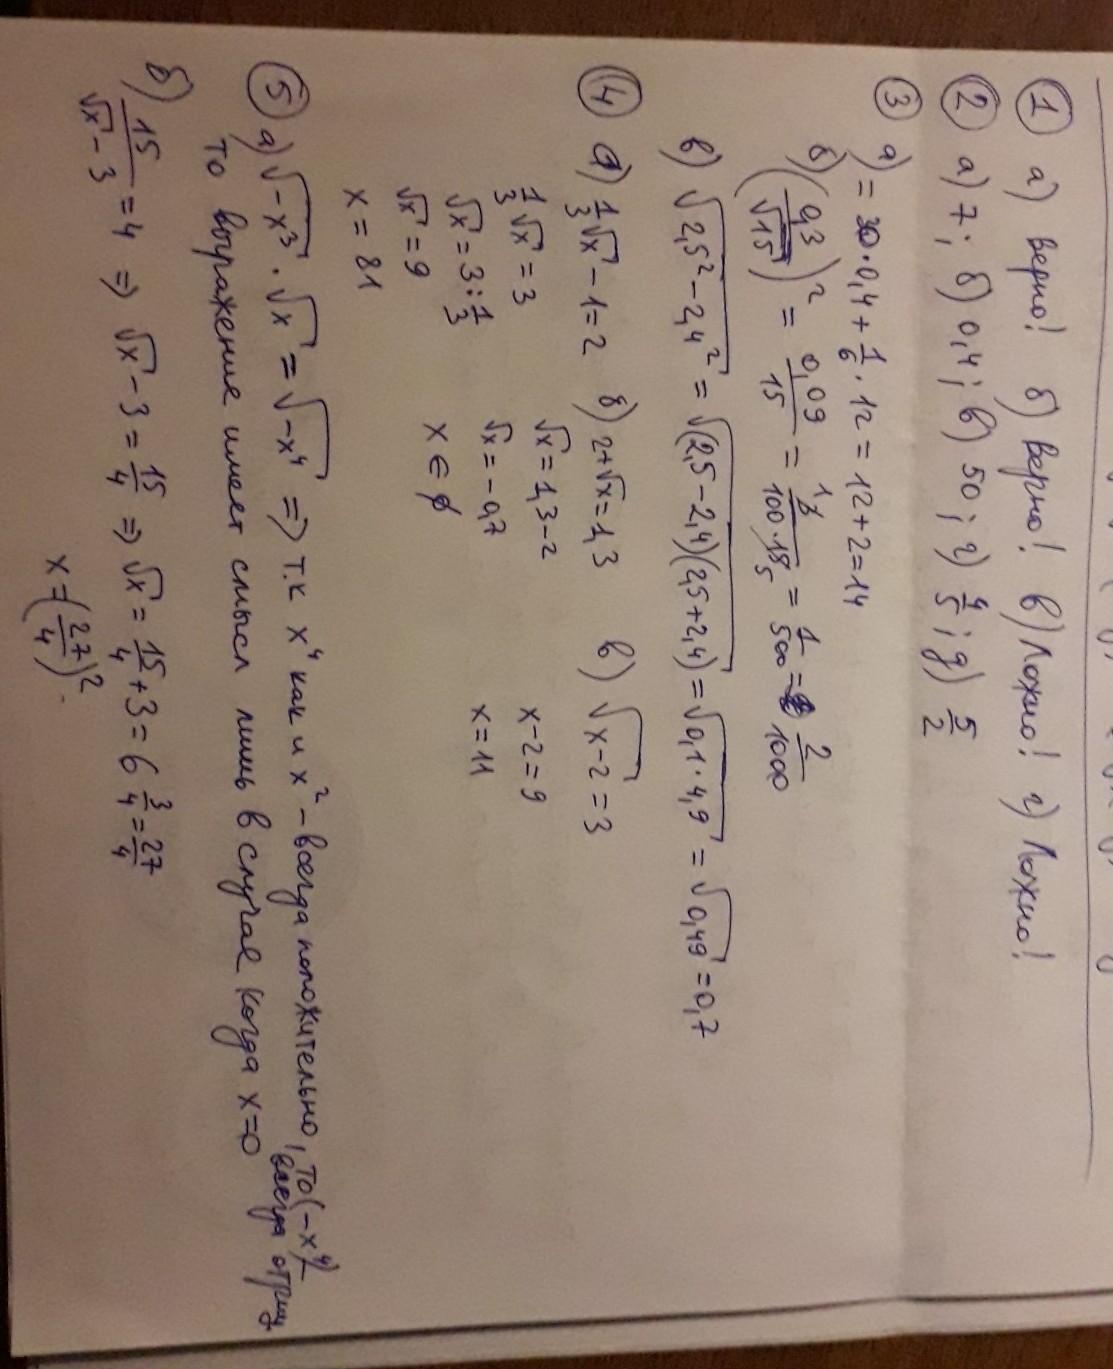 ① а) Верно! б) Верно! в) Ложно! г) Ложно!
② а) 7; б) 0,4; в) 50; г) 4/5; д) 5/2
③ а) = 30·0,4 + 1/6·12 = 12+2=14
б) (0,3/√15)² = 0,09/15 = 1/500 = 2/1000
в) √2,5²-2,4² = √(2,5-2,4)(2,5+2,4) = √0,1·4,9 = √0,49 = 0,7
④ а) 1/3√x - 1 = 2 б) 2+√x=1,3 в) √x-2 = 3
1/3√x = 3 √x = 1,3-2 x-2=9
√x = 3:1/3 √x = -0,7 x=11
√x = 9 x ∈ ∅
x = 81
⑤ а) √-x³ · √x = √-x⁴ => т.к x⁴ как и x² - всегда положительно, то (-x⁴)-
всегда отриц.
то выражение имеет смысл лишь в случае когда x=0
б) 15/√x-3 = 4 => √x-3 = 15/4 => √x = 15/4+3 = 6 3/4 = 27/4
x = (27/4)².